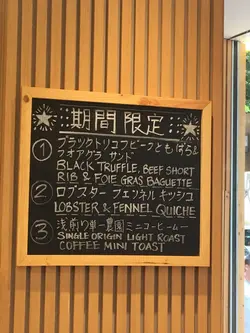 期間限定
① ブラックトリュフビーフともばら&
フォアグラ サンド
BLACK TRUFFLE, BEEF SHORT
RIB & FOIE GRAS BAGUETTE
② ロブスター フェンネル キッシュ
LOBSTER & FENNEL QUICHE
③ 浅煎り単一農園ミニコーヒー
SINGLE ORIGIN LIGHT ROAST
COFFEE MINI TOAST